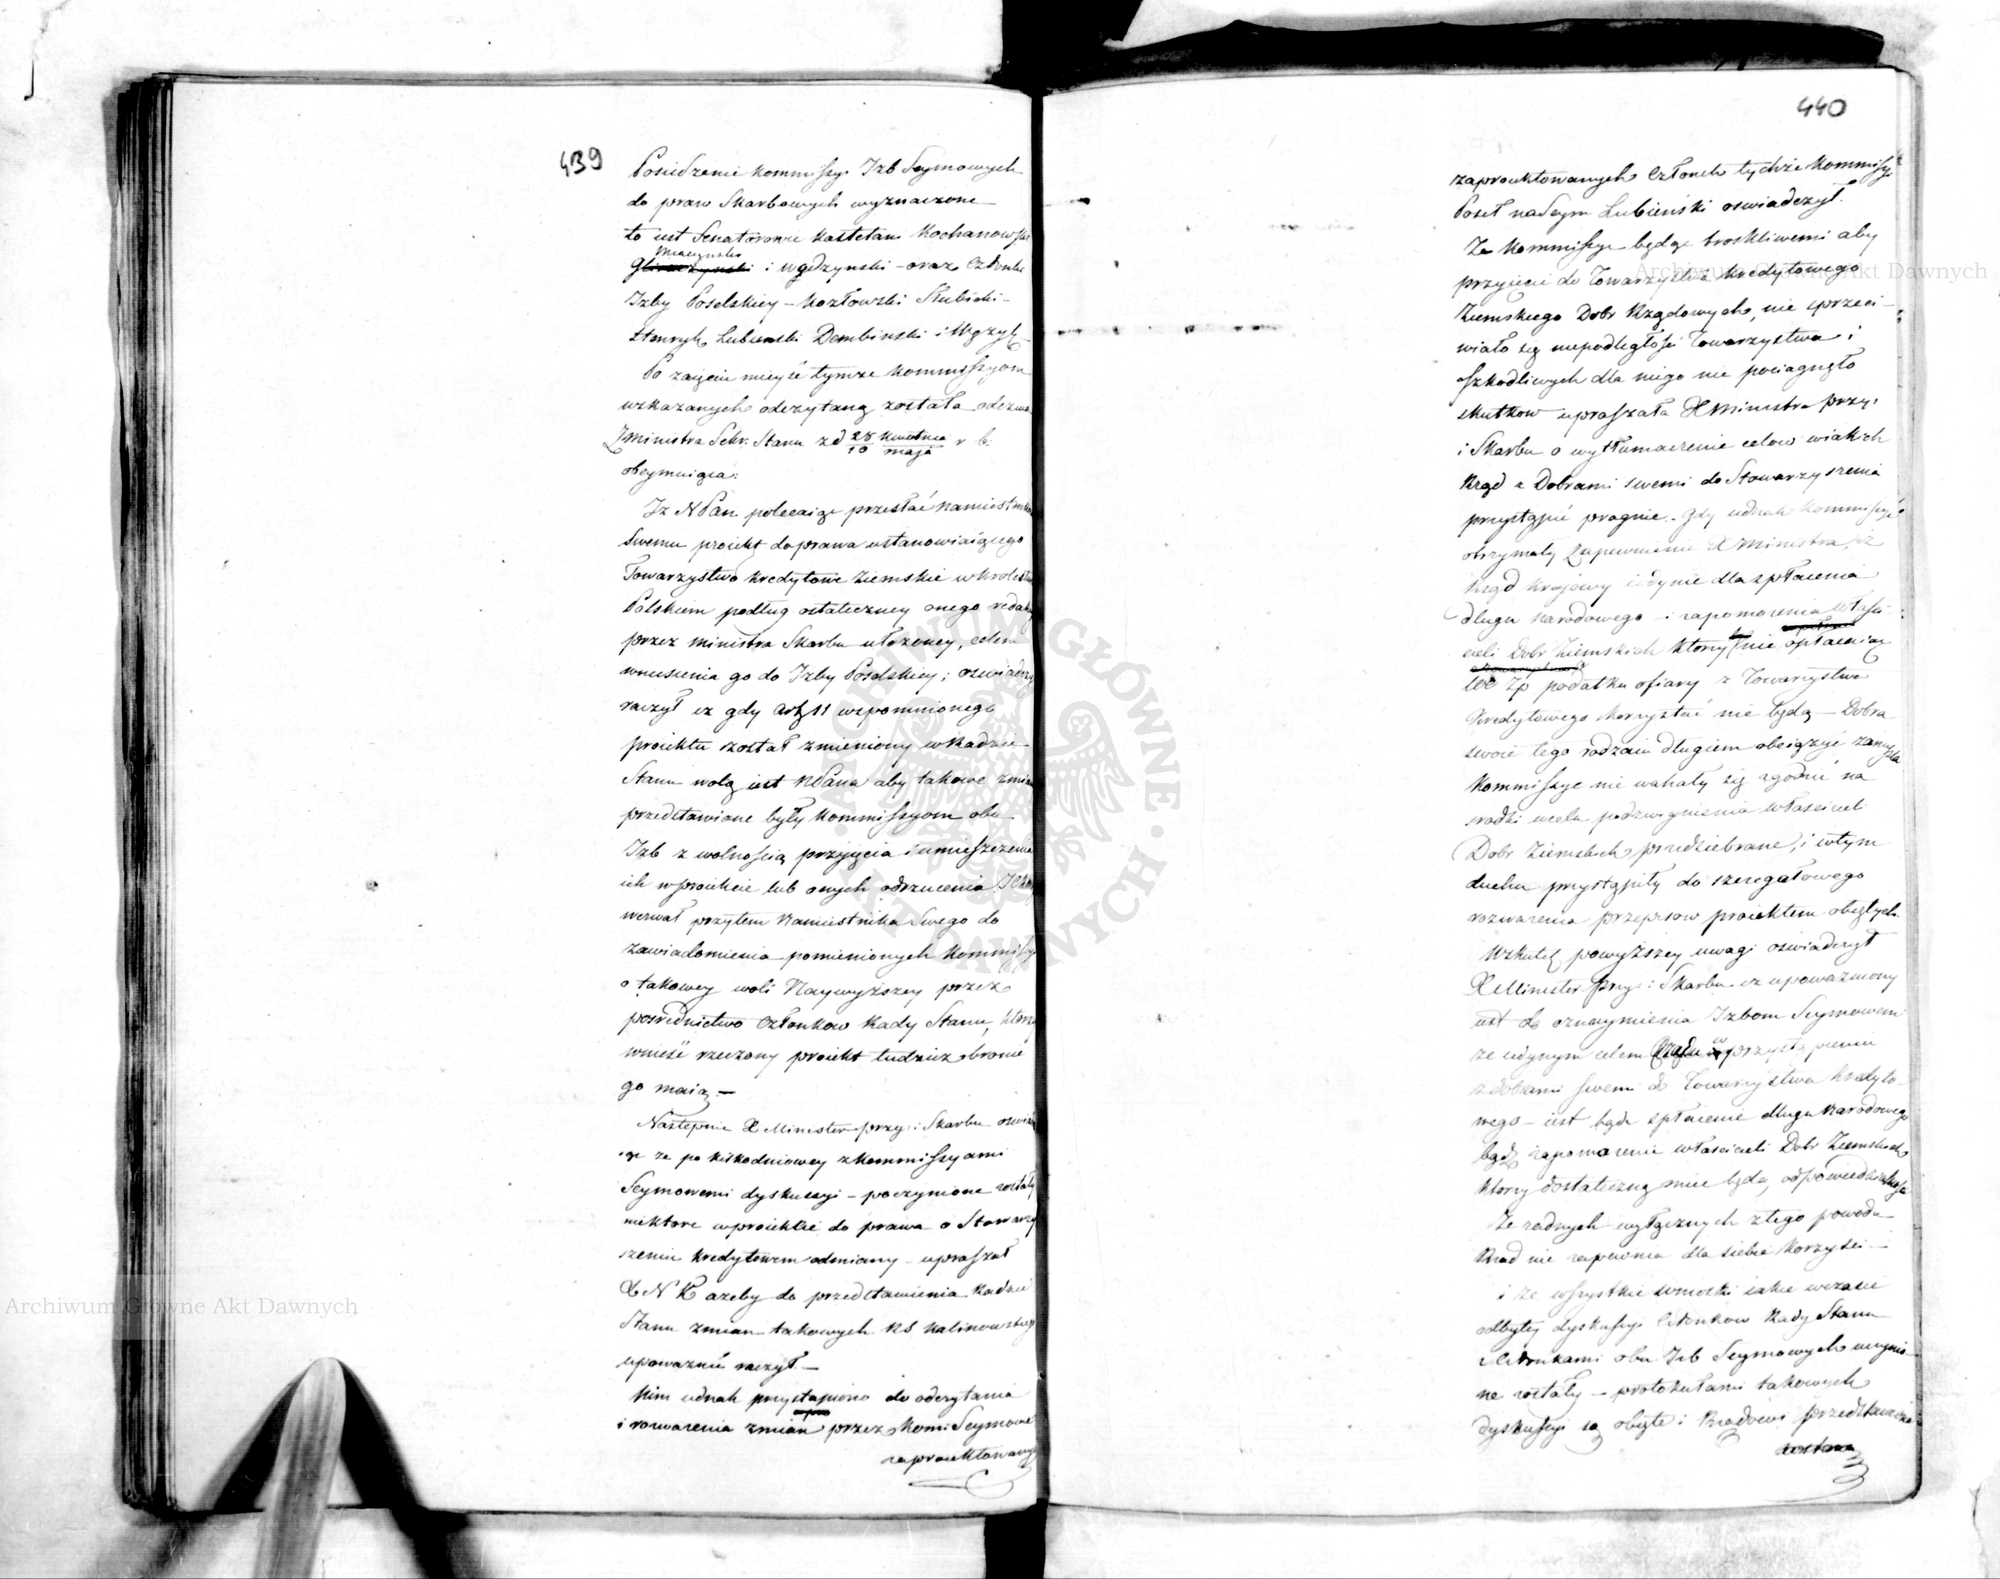 439
Posiedzenie Kommissyi Izb Seymowych
do praw Skarbowych wyznaczone
to iest Senatorowie Kasztelani Kochanowski
Miączynski
i Wodzynski – oraz Członki
Izby Poselskiey – Kozłowski Skubicki –
Henryk Lubienski Dembinski i Wężyk
Po zaięciu mieysc tymze Kommissyom
wskazanych odczytaną została odezwa
Ministra Sekr. Stanu z d 28 Kwietnia / 10 maja r b.
obeymuiąca:
Iż N Pan polecaiąc przesłać Namiestnikowi
Swemu proiekt do prawa ustanowiaiącego
Towarzystwo Kredytowe Ziemskie w Krolestwie
Polskiem podług ostateczney onego redakcyi
przez Ministra Skarbu ułożoney, celem
wniesienia go do Izby Poselskiey; oswiadczyć
raczył iz gdy art 11 wspomnionego
proiektu został zmieniony w Radzie
Stanu wolą iest NPana aby takowe zmiany
przedstawiane były Kommissyom obu
Izb z wolnością przyięcia i umieszczenia
ich w proiekcie lub onych odrzucenia
wezwał przytem Namiestnika Swego do
zawiadomienia pomienionych Kommissyi
o takowey woli Naywyższey przez
posrednictwo Członkow Rady Stanu, ktorzy
wnieść rzeczony proiekt tudzież bronić
go maią. —
Następnie X Minister przy: i Skarbu
ze po kilkodniowey z Kommissyami
Seymowemi dyskussyi – poczynione zostały
niektore w proiekcie do prawa o Stowarzy
szeniu Kredytowem odmiany – upraszał
X N K azeby do przedstawienia Radzie
Stanu zmian takowych RS Kalinowskiego
upowaznić raczył. —
Nim iednak przystąpiono do odczytania
i rozwazenia zmian przez Kom: Seymowe
zaproiektowanych
440
zaproiektowanych Członek tychże Kommissyi
Poseł na Seym Lubieński oswiadczył.
Ze Kommissye będąc troskliwemi aby
przyięcie do Towarzystwa Kredytowego
Ziemskiego Dobr Rządowych, nie sprzeci–
wiało się niepodległości Towarzystwa i
szkodliwych dla niego nie pociągnęło
skutkow upraszała X Ministra przy:
i Skarbu o wytłumaczenie celow w iakich
Rząd z Dobrami swemi do Stowarzyszenia
przystąpić pragnie. – Gdy iednak Kommissye
otrzymały zapewnienie X Ministra, iz
Rząd krajowy iedynie dla spłacenia
długu narodowego – i zapomozenia właści
cieli Dobr Ziemskich ktorzy nie opłacaiąc
100 Zp podatku ofiary z Towarzystwa
Kredytowego korzystać nie będą – Dobra
swoie tego rodzaiu długiem obciążyć zamyśla
Kommissye nie wahały się zgodzić na
srodki w celu podzwignienia właścicieli
Dobr Ziemskich przedsiebrane, i w tym
duchu przystąpiły do szczegułowego
rozwazenia przepisow proiektem obiętych.
W skutek powyższey uwagi oswiadczył
X Minister przy: i Skarbu iz upowazniony
iest do oznaymienia Izbom Seymowem
ze iedynym celem Rządu w przystąpieniu
z dobrami swemi do Towarzystwa Kredyto–
wego – iest bądz spłacenie długu Narodowego
bądz zapomozenie właścicieli Dobr Ziemskich
ktorzy dostateczną miec będą odpowiedzialność
Ze zadnych wyłącznych z tego powodu
Rząd nie zapewnia dla siebie korzyści –
i ze wszystkie wnioski iakie w czasie
odbytey dyskussyi Członkow Rady Stanu
z Członkami obu Izb Seymowych uczynio–
ne zostały – protokułami takowych
dyskussyi są obięte i Rządowi przedstawione
zostaną